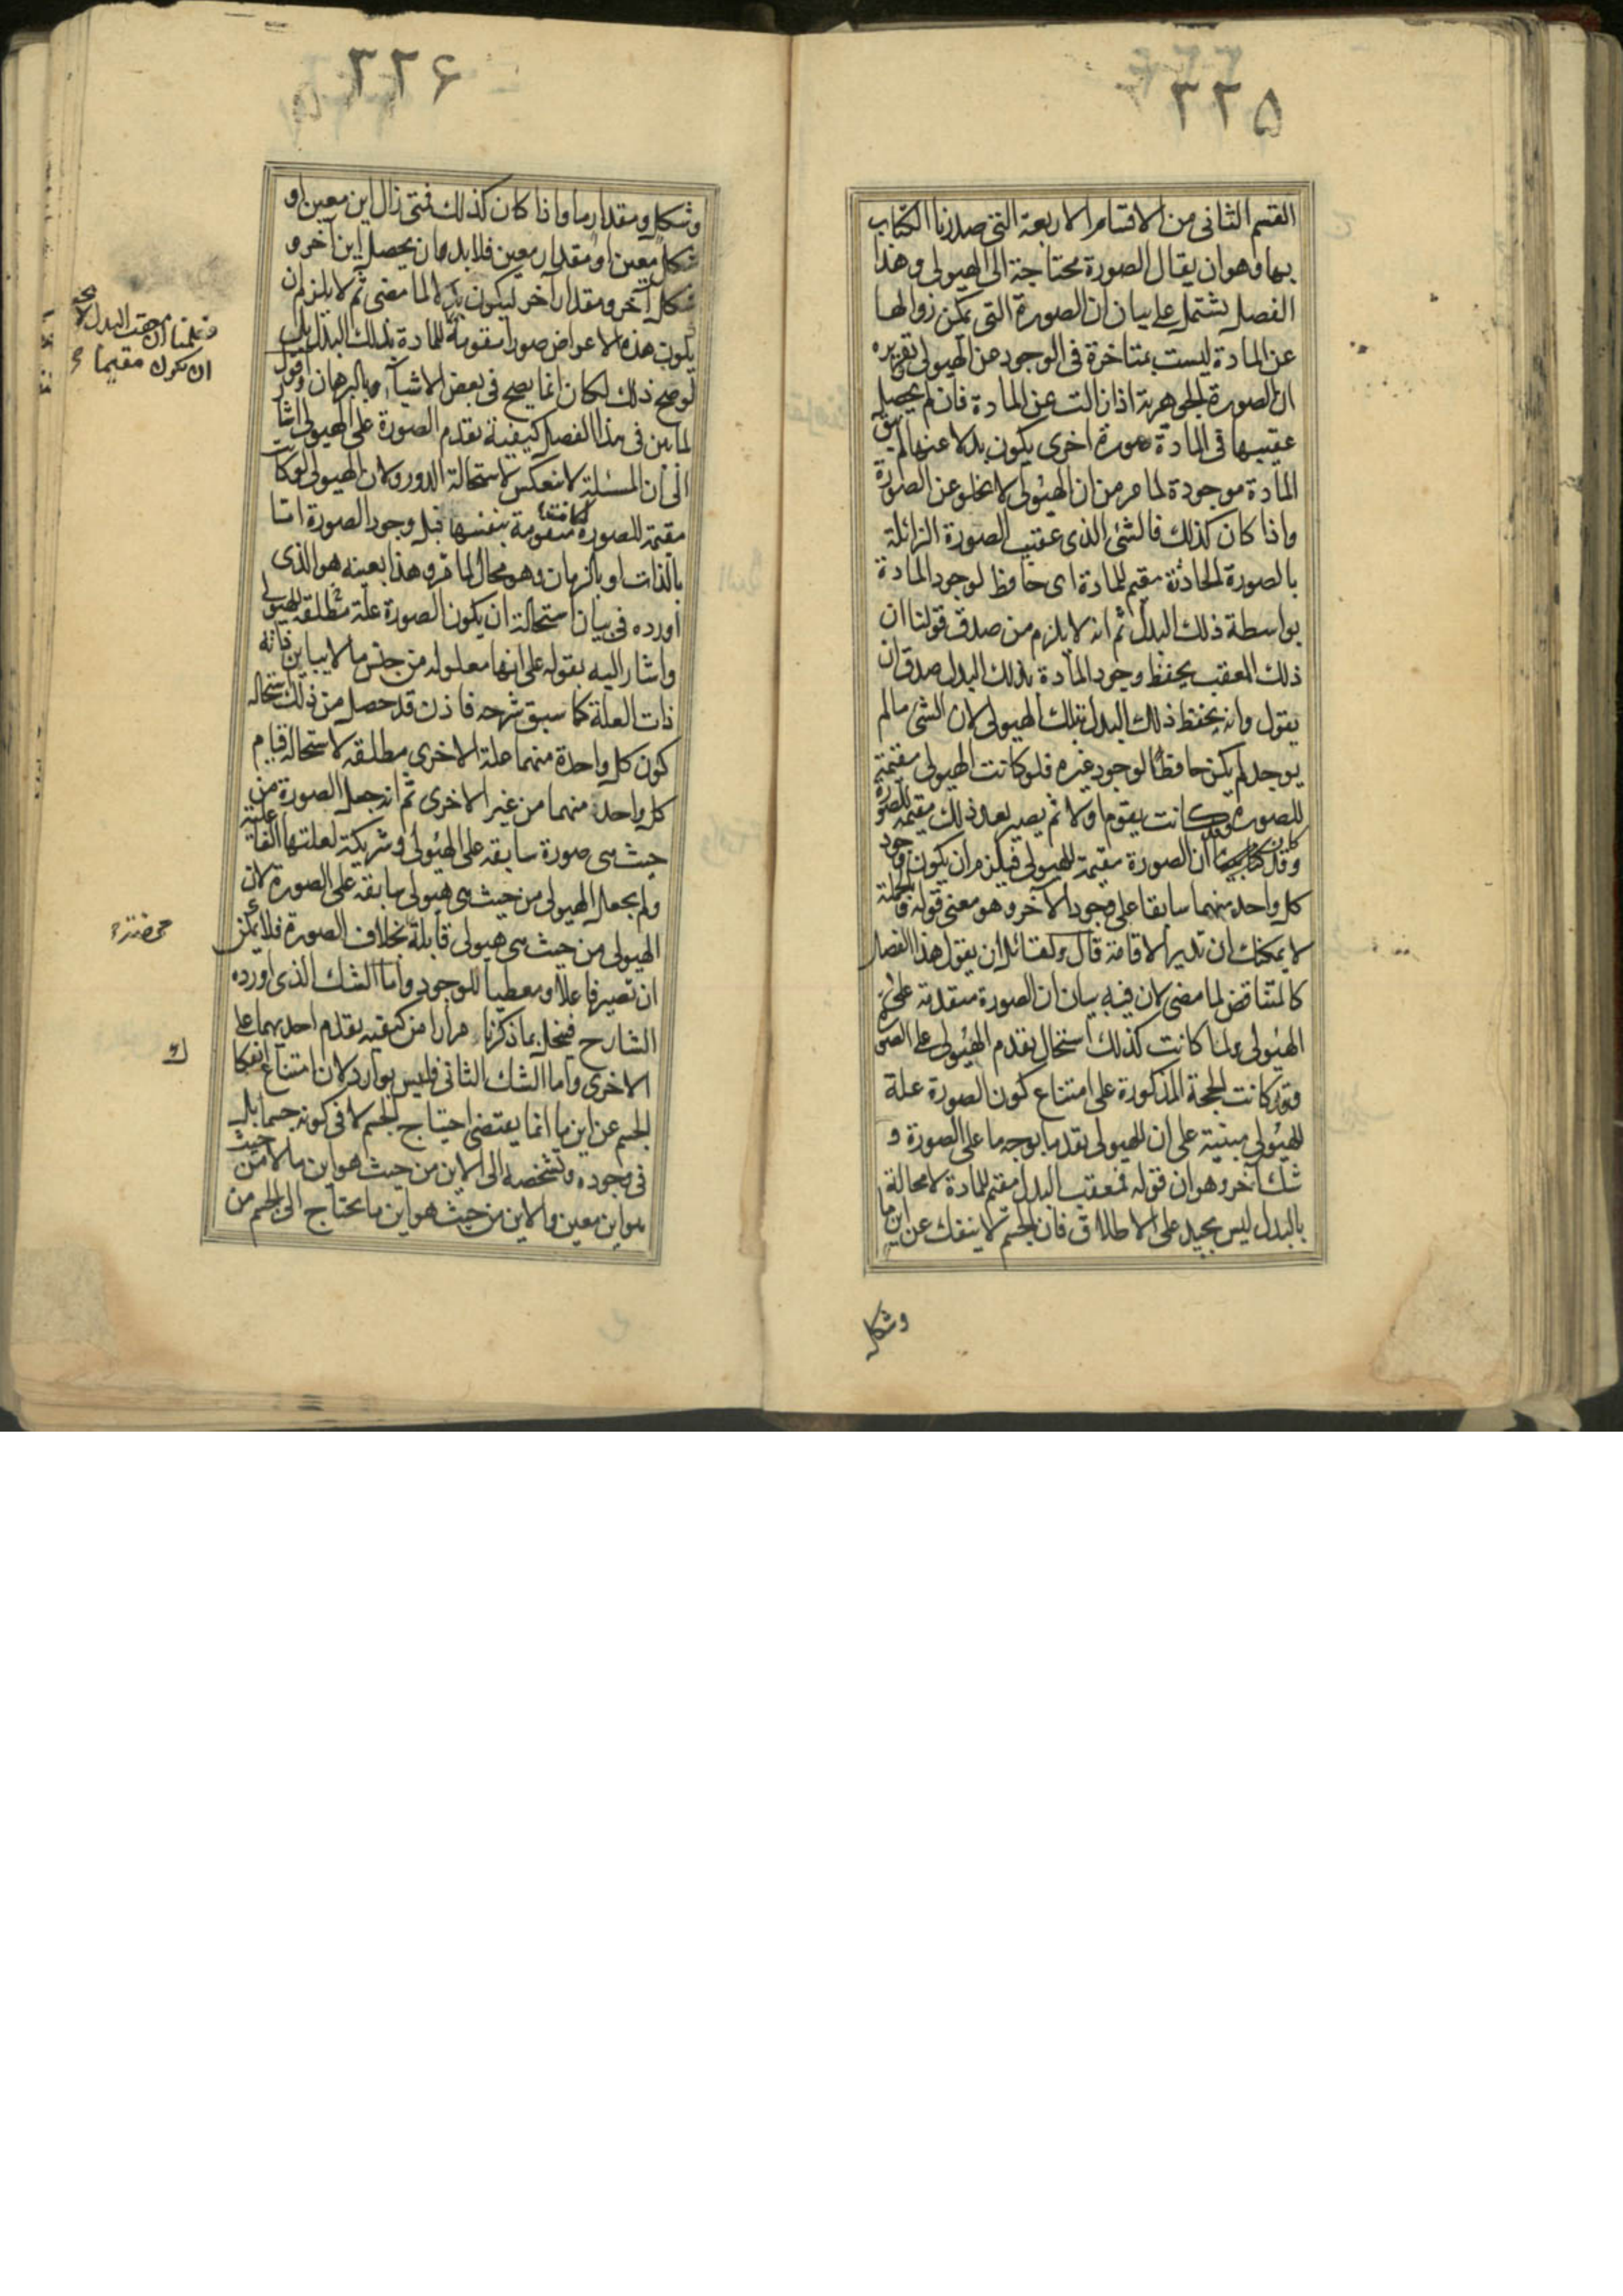 ٣٢۵
القسم الثانى من الاقسام الاربعة التى صدرنا الكتاب
بها وهو ان يقال الصورة محتاجة الى الهيولى وهذا
الفصل يشتمل على بيان ان الصورة التى يمكن زوالها
عن المادة ليست بمتاخرة فى الوجود عن الهيولى تقريره
ان الصورة الجوهرية اذا زالت عن المادة فان لم يحصل
عقيبها فى المادة صورة اخرى يكون بدلا عنها لم يبق
المادة موجودة لما مر من ان الهيولى لا يخلو عن الصورة
واذا كان كذلك فالشئ الذى عقب الصورة الزائلة
بالصورة الحادثة مقيم للمادة اى حافظ لوجود المادة
بواسطة ذلك البدل ثم انه لا يلزم من صدق قولنا ان
ذلك المعقب يحفظ وجود المادة بذلك البدل صدق ان
يقول وانه يحفظ ذلك البدل بتلك الهيولى لان الشئ مالم
يوجد لم يكن حافظا لوجود غيره فلو كانت الهيولى مقيمة
للصورة وكانت يقوم اولا ثم يصير بعد ذلك مقيمة للصورة
وقد كان ان الصورة مقيمة للهيولى فيلزم ان يكون وجود
كل واحد منهما سابقا على وجود الاخر وهو معنى قوله وبالجملة
لا يمكنك ان تدير الاقامة قال ولقائل ان يقول هذا الفصل
كالمتناقض لما مضى لان فيه بيان ان الصورة متقدمة على
الهيولى ولما كانت كذلك استحال تقدم الهيولى على الصورة
وقد كانت الحجة المذكورة على امتناع كون الصورة علة
للهيولى مبنية على ان للهيولى تقدما بوجه ما على الصورة و
شك آخر وهو ان قوله فمعقب البدل مقيم للمادة لا محالة
بالبدل ليس بجيد على الاطلاق فان الجسم لا ينفك عن اين ما
وشكل
٣٢۶
وشكل ومقدار ما واذا كان كذلك فمتى زال اين معين او
شكل معين او مقدار معين فلا بد وان يحصل اين آخر و
شكل آخر ومقدار آخر ليكون بدلا لما مضى ثم لا يلزم ان
يكون هذه الاعراض صورا مقومة للمادة بذلك البدل بل
لو صح ذلك لكان انما يصح فى بعض الاشياء وبالبرهان واقول
لما بين فى هذا الفصل كيفية تقدم الصورة على الهيولى اشار
الى ان المسئلة لا تنعكس لاستحالة الدور ولان الهيولى لو كانت
مقيمة للصورة لكانت متقومة بنفسها قبل وجود الصورة اما
بالذات او بالزمان وهو محال لما مر وهذا بعينه هو الذى
اورده فى بيان استحالة ان يكون الصورة علة مطلقة للهيولى
واشار اليه بقوله على انها معلوله من جنس ما لا يباين ذاته
ذات العلة كما سبق شرحه فاذن قد حصل من ذلك استحالة
كون كل واحدة منهما علة الاخرى مطلقه لاستحالة قيام
كل واحد منهما من غير الاخرى ثم انه جعل الصورة من
حيث هى صورة سابقه على الهيولى وشريكة لعلتها
ولم يجعل الهيولى من حيث هى هيولى سابقه على الصورة لان
الهيولى من حيث هى هيولى قابلة بخلاف الصورة فلا يمكن
ان تصير فاعلا ومعطيا للوجود واما الشك الذى اورده
الشارح فينحل بما ذكرناه مرارا من كيفية تقدم احديهما على
الاخرى واما الشك الثانى فليس بوارد لان امتناع انفكا
الجسم عن اين ما انما يقتضى احتياج الجسم لا فى كونه جسما بل
فى وجوده وتشخصه الى الاين من حيث هو اين ما لا من حيث
هو اين معين والاين من حيث هو اين ما يحتاج الى الجسم من
ان يكون مقيما
ك